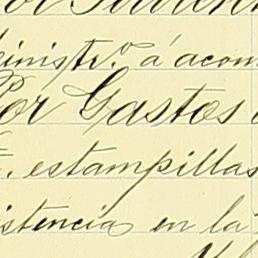 ministr.º á acom
Por Gastos
estampillas
istencia en la